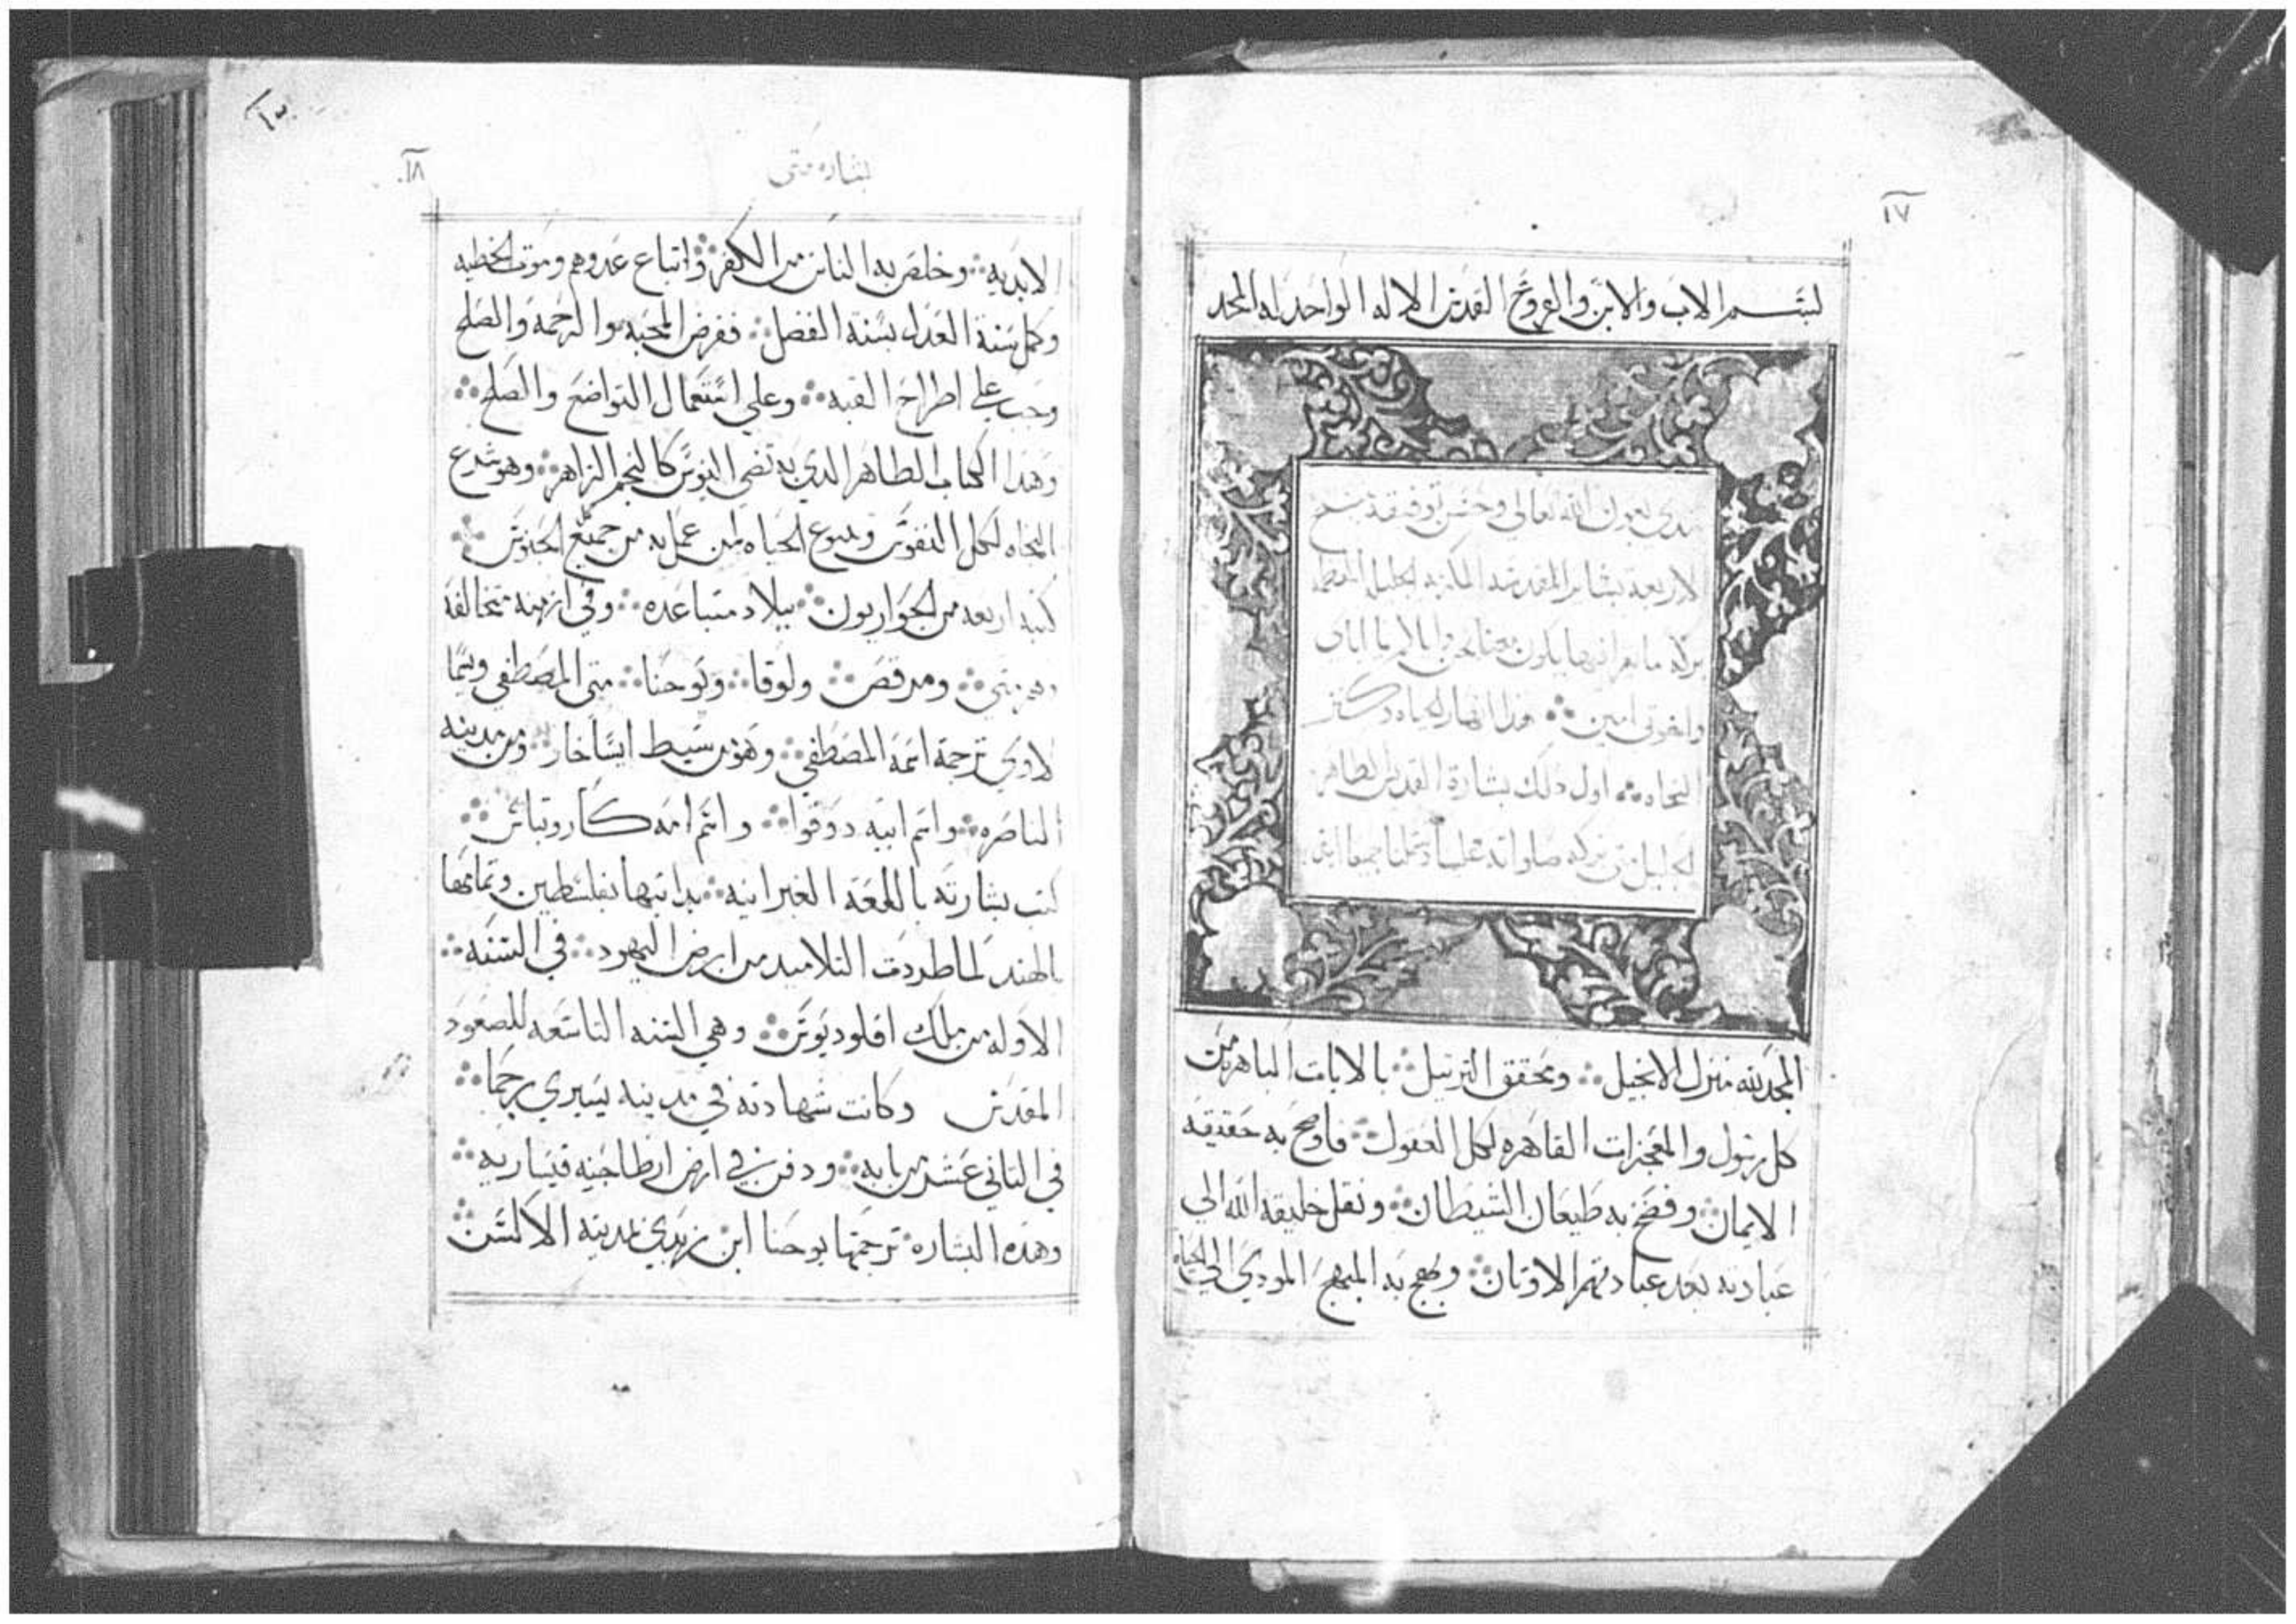 ١٧
بسم الاب والابن والروح القدس الاله الواحد له المجد
نبتدي بعون الله تعالى وحسن توفيقه بنسخ
الاربعة بشاير المقدسه
بركة ما يقرا فيها يكون معنا
واخوتي امين ஃ هذا انهار الحياه وكنز
النجاه ஃ اول ذلك بشارة القديس الطاهر
الجليل متى بركه صلواته علينا
المجد لله منزل الانجيل ஃ ومحقق التنزيل ஃ بالايات الباهره من
كل رسول والمعجزات القاهره لكل العقول ஃ فاوضح به حقيقه
الايمان ஃ وفضح به طيعان الشيطان ஃ ونقل خليقه الله الى
عبادته بعد عبادتهم الاوثان ஃ ونهج به المنهج المودي الى الحياه
١٨
بشاره متى
الابديه ஃ وخلص به الناس من الكفر ஃ واتباع عدوهم وموت الخطيه
وكمل سنة العدل بسنة الفضل ஃ ففرض المحبه والرحمه والصلح
وحب على اطراح القيه ஃ وعلى استعمال التواضع والصلح ஃ
وهذا الكتاب الطاهر الدي به تضي النفوس كالنجم الزاهر ஃ وهو شرع
النجاه لكل النفوس وينبوع الحياه لمن عمل به من جميع الجنوس
كتبه اربعه من الحواريون ஃ ببلاد متباعده ஃ وفي ازمنه متخالفه
وهم متى ஃ ومرقص ஃ ولوقا ஃ ويوحنا ஃ متى المصطفى ويسما
لاوي ترجمة اسمه المصطفى ஃ وهو من سبط ايساخار ஃ ومن مدينه
الناصره ஃ واسم ابيه دوقوا ஃ واسم امه كاروتياس ஃ
كتب بشارته باللغه العبرانيه ஃ بداتها بفلسطين وتمامها
بالهند لما طردت التلاميد من ارض اليهود ஃ في السنه ஃ
الاوله من ملك اقلوديوس ஃ وهي السنه التاسعه للصعود
المقدس وكانت شهادته في مدينه يسيري رجما ஃ
في التاني عشر من بابه ஃ ودفن في ارض ارطاجنه قيساريه ஃ
وهذه البشاره ترجمها يوحنا ابن زبدي بمدينه الاكسس